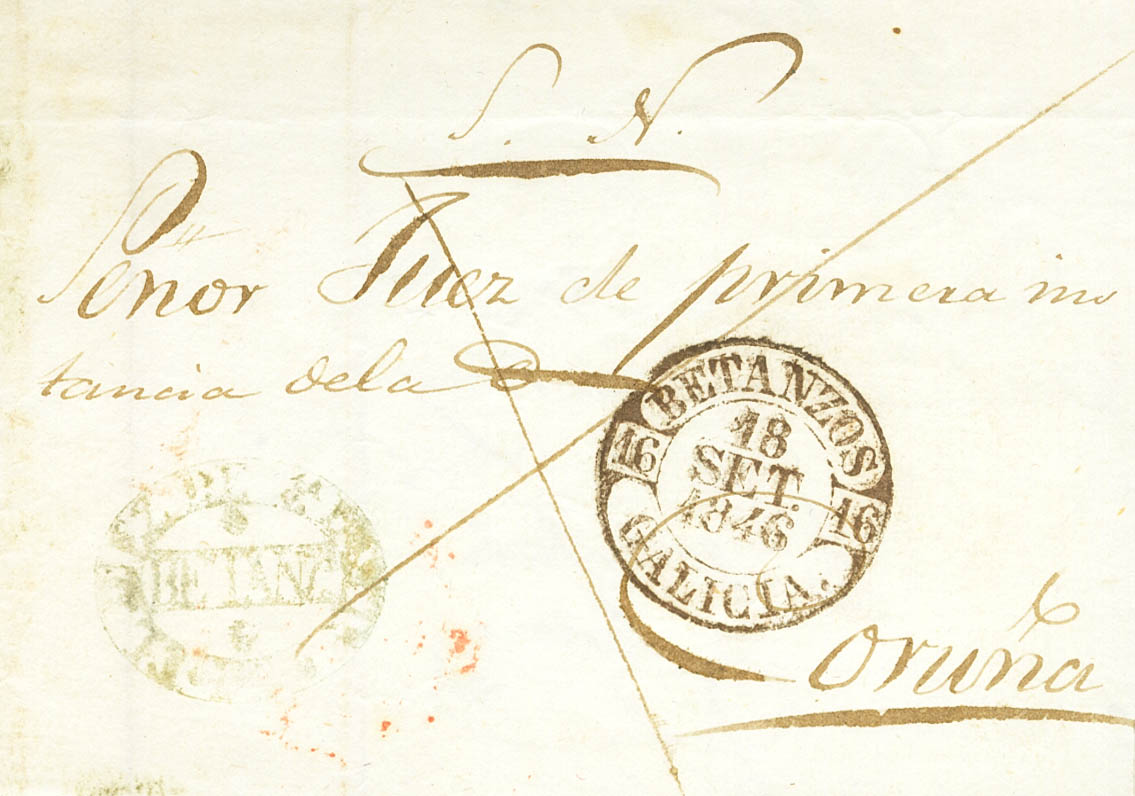 S. N.
Señor Juez de primera ins
tancia dela
BETANZOS
16 18 16
SET.
1846
GALICIA.
BETANZ
Coruña